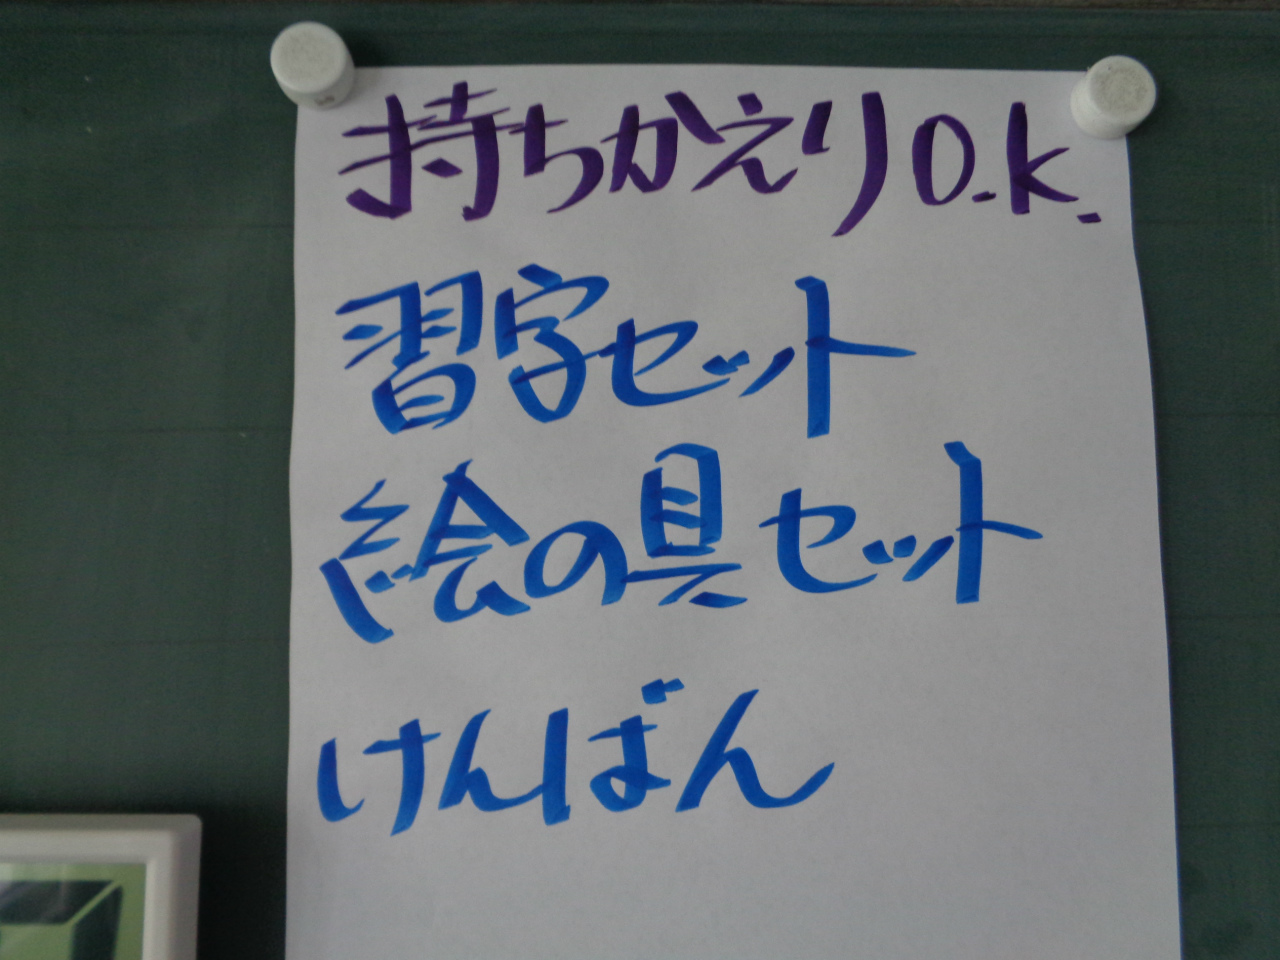 持ちかえりO.K.
習字セット
絵の具セット
けんばん